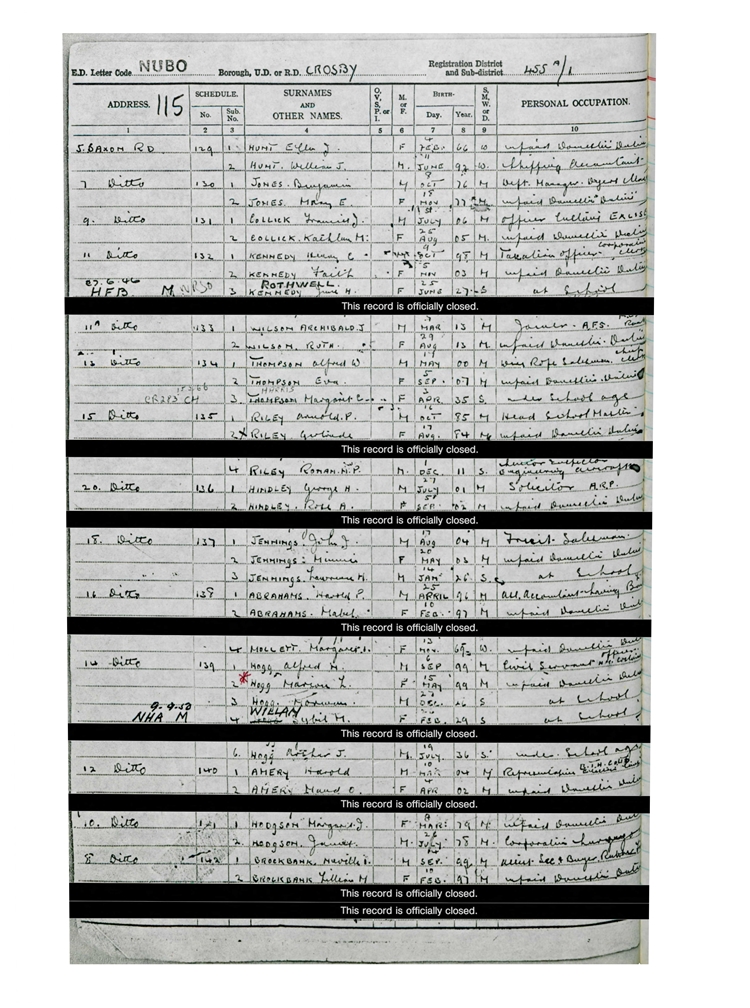 E.D. Letter Code NUBO Borough, U.D. or R.D. CROSBY Registration District and Sub-district 455 A/1
ADDRESS. 115 SCHEDULE. No. Sub. No. SURNAMES AND OTHER NAMES. O. V. S. P. or I. M. or F. BIRTH— Day. Year. S. M. W. or D. PERSONAL OCCUPATION.
1 2 3 4 5 6 7 8 9 10
5. SAXON RD 129 1 HUNT Ellen J. F 4 FEB. 66 W unpaid Domestic Duties
2 HUNT. William J. M. 11 JUNE 92 W. Shipping Accountant
7 Ditto 130 1 JONES. Benjamin M 8 OCT 76 M Dept. Manager
2 JONES. Mary E. F 15 NOV 77 M unpaid Domestic Duties
9. Ditto 131 1 COLLICK Francis J. M 1st JULY 06 M officer
2 COLLICK. Kathleen M. F 25 AUG 05 M. unpaid Domestic Duties
11 Ditto 132 1 KENNEDY Henry C 9 OCT 97 M Taxation officer Corporation
2 KENNEDY Faith F 5 NOV 03 M unpaid Domestic Duties
27.6.46 ROTHWELL
HFB M NR30 3 KENNEDY June H. F 25 JUNE 27 S at School
This record is officially closed.
11A Ditto 133 1 WILSON ARCHIBALD. J M 7 MAR 13 M Joiner A.F.S.
2 WILSON. RUTH. F 29 AUG 13 M. unpaid Domestic Duties
13 Ditto 134 1 THOMPSON Alfred W M 19 MAY 00 M Wire Rope Salesman.
2 THOMPSON Eva. F 5 SEP. 07 M unpaid Domestic Duties
HARRIS
CR283 CH 3. THOMPSON Margaret F 3 APR 35 S. under School age
15 Ditto 135 1 RILEY Arnold. P. M 16 OCT 85 M Head School Master
2 RILEY Gertrude F 17 AUG. 84 M unpaid Domestic Duties
This record is officially closed.
4 RILEY M. 1 DEC. 11 S. Junior Inspector engineering aircraft
20. Ditto 136 1 HINDLEY George H. M 27 JULY 01 M Solicitor A.R.P.
2 HINDLEY. Rose A. F SEP. 02 M unpaid Domestic Duties
This record is officially closed.
18. Ditto 137 1 JENNINGS. John J. M 17 AUG 04 M Fruit Salesman.
2 JENNINGS. Minnie F 20 MAY 03 M unpaid Domestic Duties
3 JENNINGS. Lawrence M. M 14 JAN 26 S. at School
16 Ditto 138 1 ABRAHAMS. Harold P. M 25 APRIL 96 M
2 ABRAHAMS. Mabel F 10 FEB. 97 M unpaid Domestic Duties
This record is officially closed.
4 MOLLETT. Margaret F 13 NOV. W. unpaid Domestic Duties
14 Ditto 139 1 HOGG Alfred H. M 6 SEP 99 M Civil Servant officer
2 HOGG Marion L. F 15 MAY 99 M unpaid Domestic Duties
3 HOGG. Norman M 27 DEC. 26 S at School
9.9.50 WILLAN
NHA M 4 Sybil M. F FEB. 29 S at School
This record is officially closed.
6. HOGG J. M. 19 JULY 36 S. under School age
12 Ditto 140 1 AMERY Harold M 10 MAR 04 M Representative
2 AMERY Maud O. F 4 APR 02 M unpaid Domestic Duties
This record is officially closed.
10. Ditto 141 1 HODGSON Margaret J. F 9 MAR. 79 M unpaid Domestic Duties
2. HODGSON. James. M. 26 JULY 78 M. Corporation
8 Ditto 142 1 BROCKBANK. Neville M SEP. 99 M
2 BROCKBANK Lillian M F 18 FEB. 97 M unpaid Domestic Duties
This record is officially closed.
This record is officially closed.